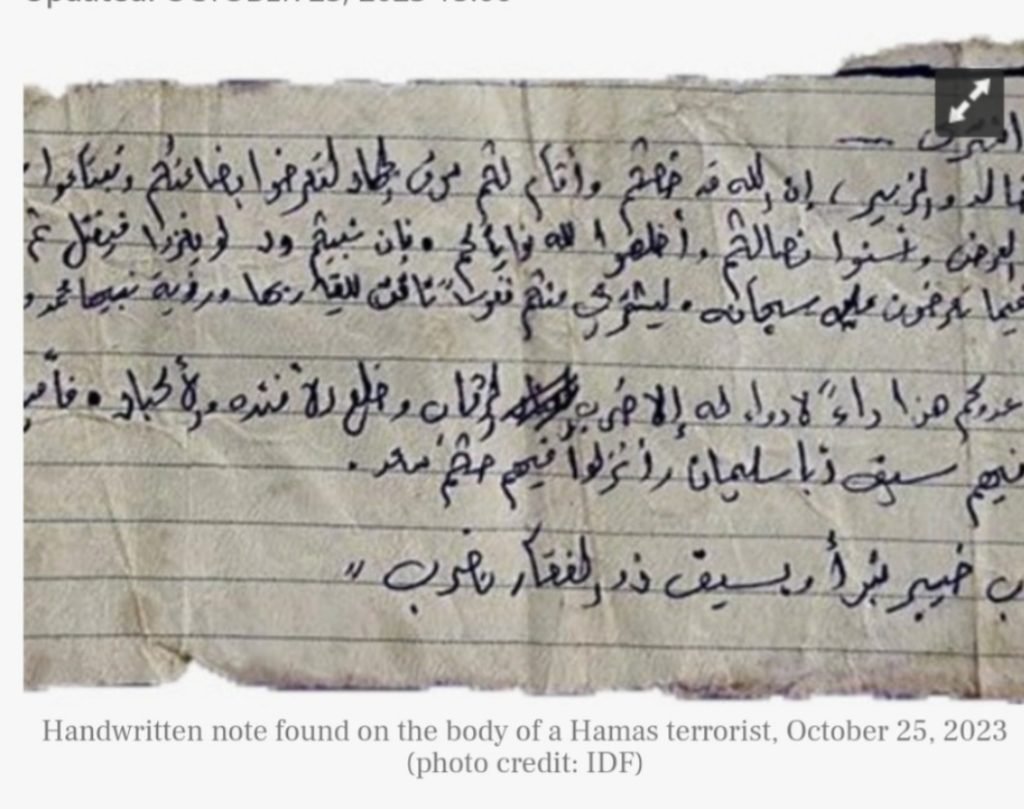 Updated: OCTOBER 25, 2023
خالد والزبير، إن الله قد خصكم وأقام لكم سوق الجهاد لتعرضوا بضاعتكم
العرض وأخلصوا لله نواياكم. فإن نبيكم ود لو يغزوا فيقتل ثم
فيما تعرضون عليه سبحانه. ليشتري منكم نفوساً تاقت للقاء ربها ورؤية نبيها محمد
عدوكم هذا داءً لا دواء له إلا ضرب الرقاب وخلع الأفئدة والأكباد.
فيهم سيف أبا سليمان وأنزلوا فيهم حكم سعد.
خيبر نبرأ وبسيف ذو الفقار نضرب "
Handwritten note found on the body of a Hamas terrorist, October 25, 2023
(photo credit: IDF)